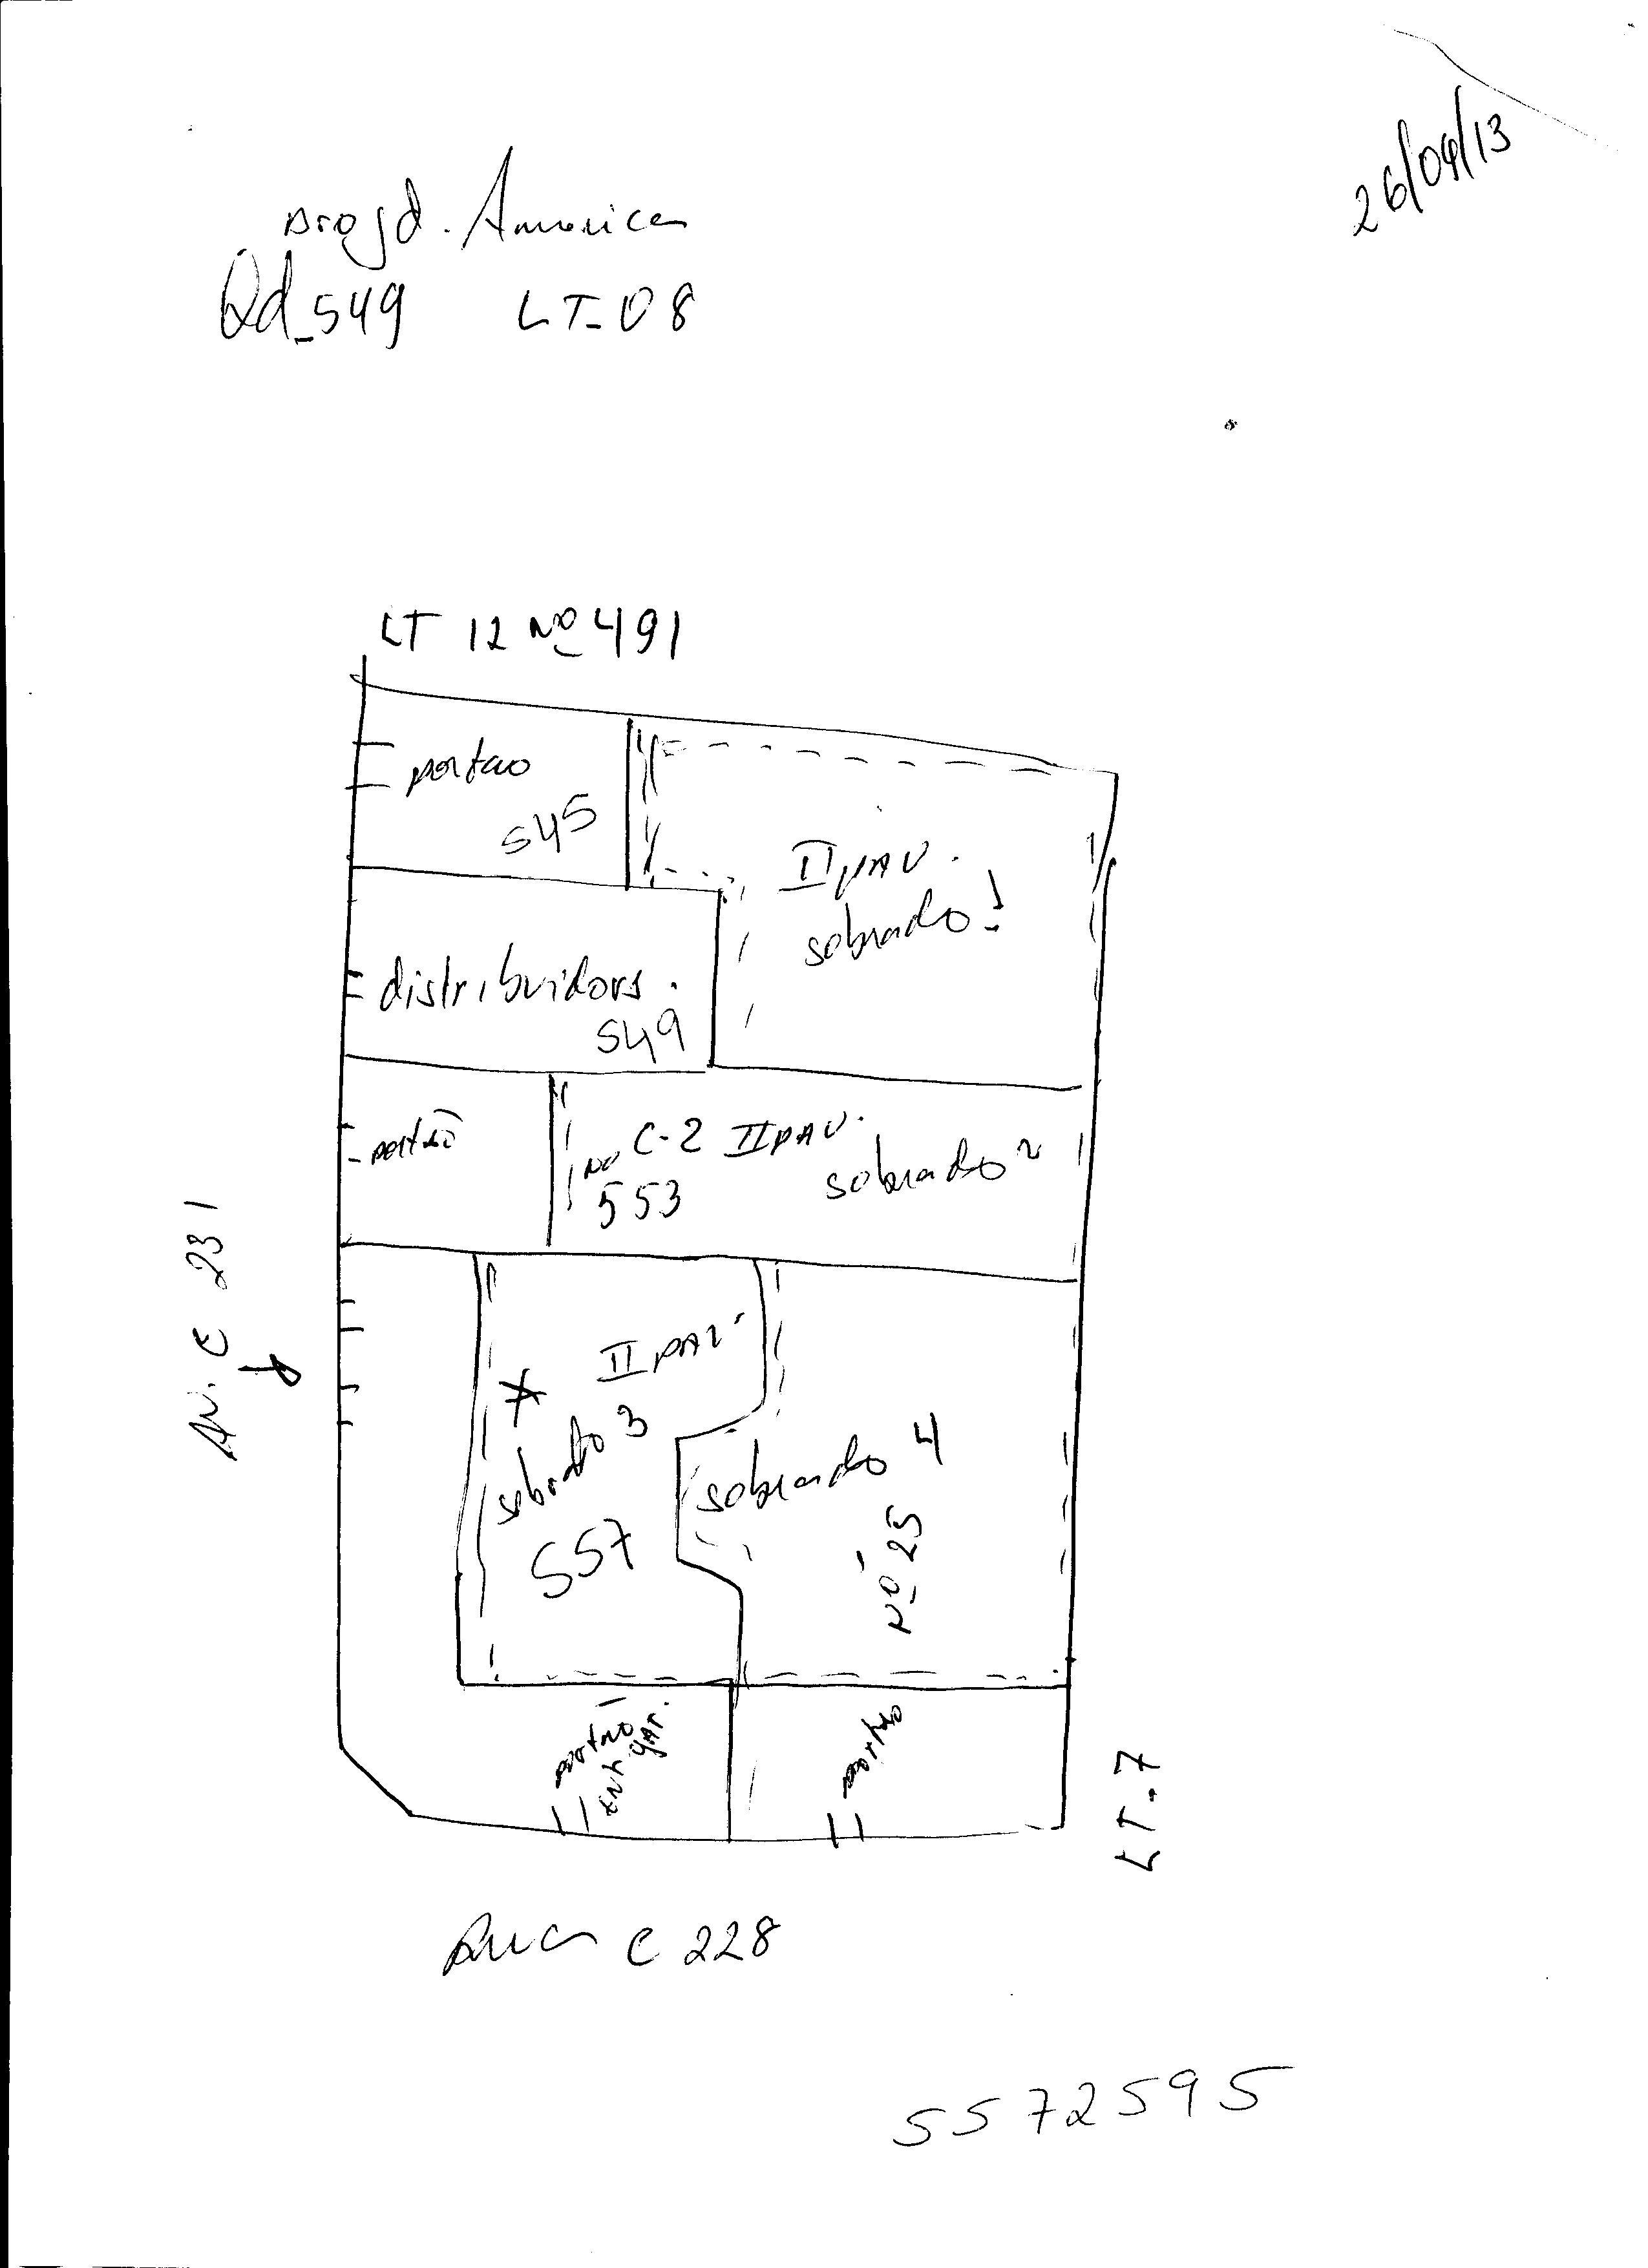 26/04/13
Jd. America
Qd_549 LT-08
LT 12 Nº 491
portao
545
II PAV.
sobrado 1
distribuidora.
549
portão
Nº C-2 II PAV.
553
sobrado 2
Av. C 231
II PAV
sobrado 3
557
sobrado 4
Nº 25
portão
ent gar.
portão
LT-7
Rua C 228
5572595